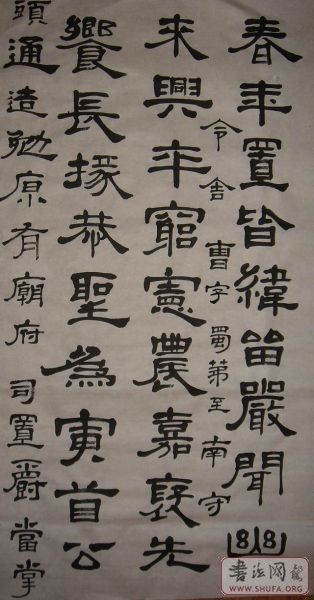 春年置皆緯留嚴聞幽
令舍曹字蜀第至南守
來興卒窮憲農嘉褒先
饗長掾恭聖為寅首公
頭通造勉原有廟府司置爵當掌
书法网
WWW.SHUFA.ORG